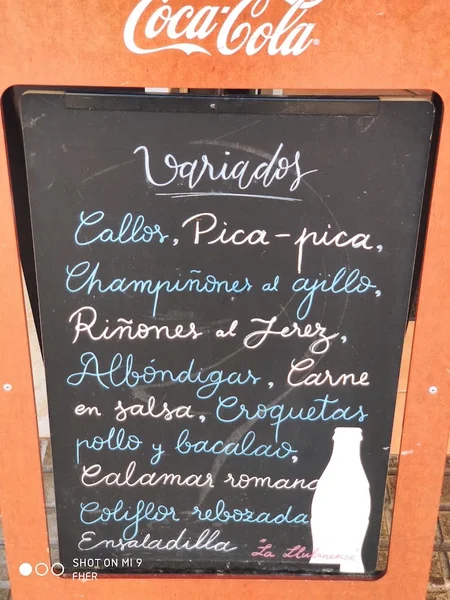 Coca-Cola
Variados
Callos, Pica-pica,
Champiñones al ajillo,
Riñones al Jerez,
Albóndigas, Carne
en salsa, Croquetas
pollo y bacalao,
Calamar romana
Coliflor rebozada
Ensaladilla "La
SHOT ON MI 9
FHER